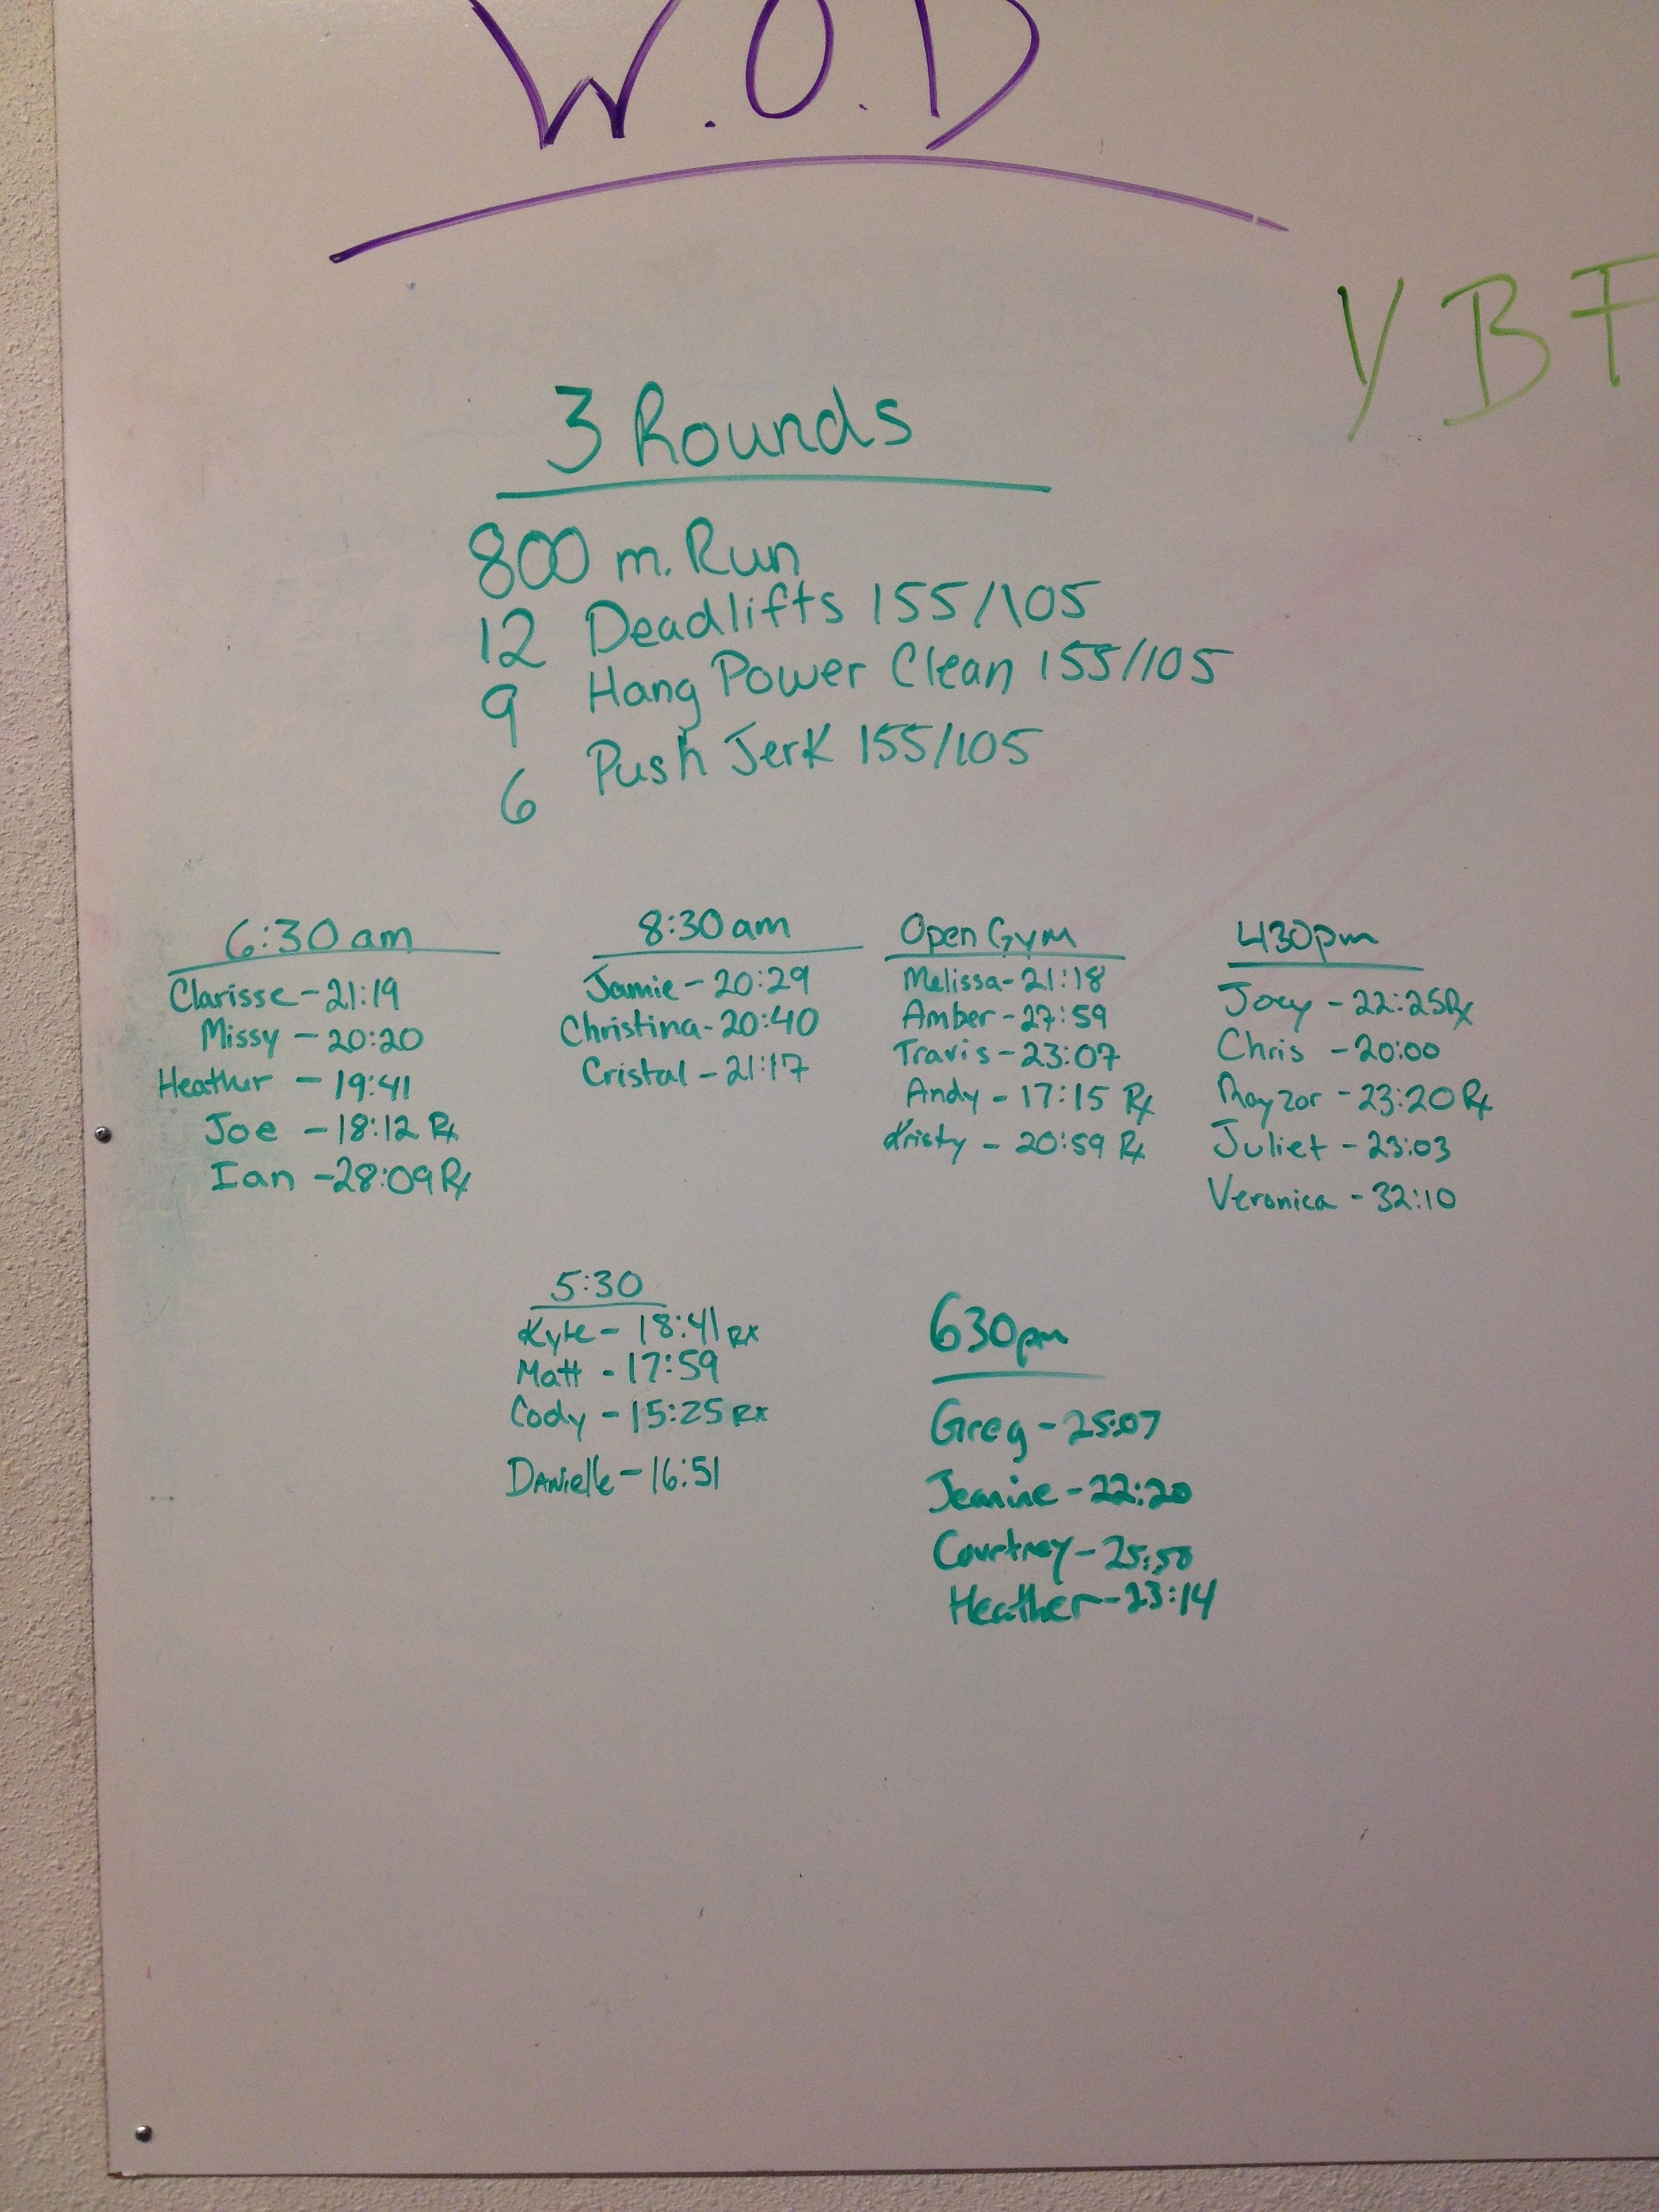 W.O.D
YBF
3 Rounds
800 m. Run
12 Deadlifts 155/105
9 Hang Power Clean 155/105
6 Push Jerk 155/105
6:30am
Clarisse - 21:19
Missy - 20:20
Heather - 19:41
Joe - 18:12 Rx
Ian - 28:09 Rx
8:30am
Jamie - 20:29
Christina - 20:40
Cristal - 21:17
Open Gym
Melissa - 21:18
Amber - 27:59
Travis - 23:07
Andy - 17:15 Rx
Kristy - 20:59 Rx
430pm
Joey - 22:25 Rx
Chris - 20:00
Rayzor - 23:20 Rx
Juliet - 23:03
Veronica - 32:10
5:30
Kyle - 18:41 RX
Matt - 17:59
Cody - 15:25 RX
Danielle - 16:51
630pm
Greg - 25:07
Jeanine - 22:20
Courtney - 25:50
Heather - 23:14